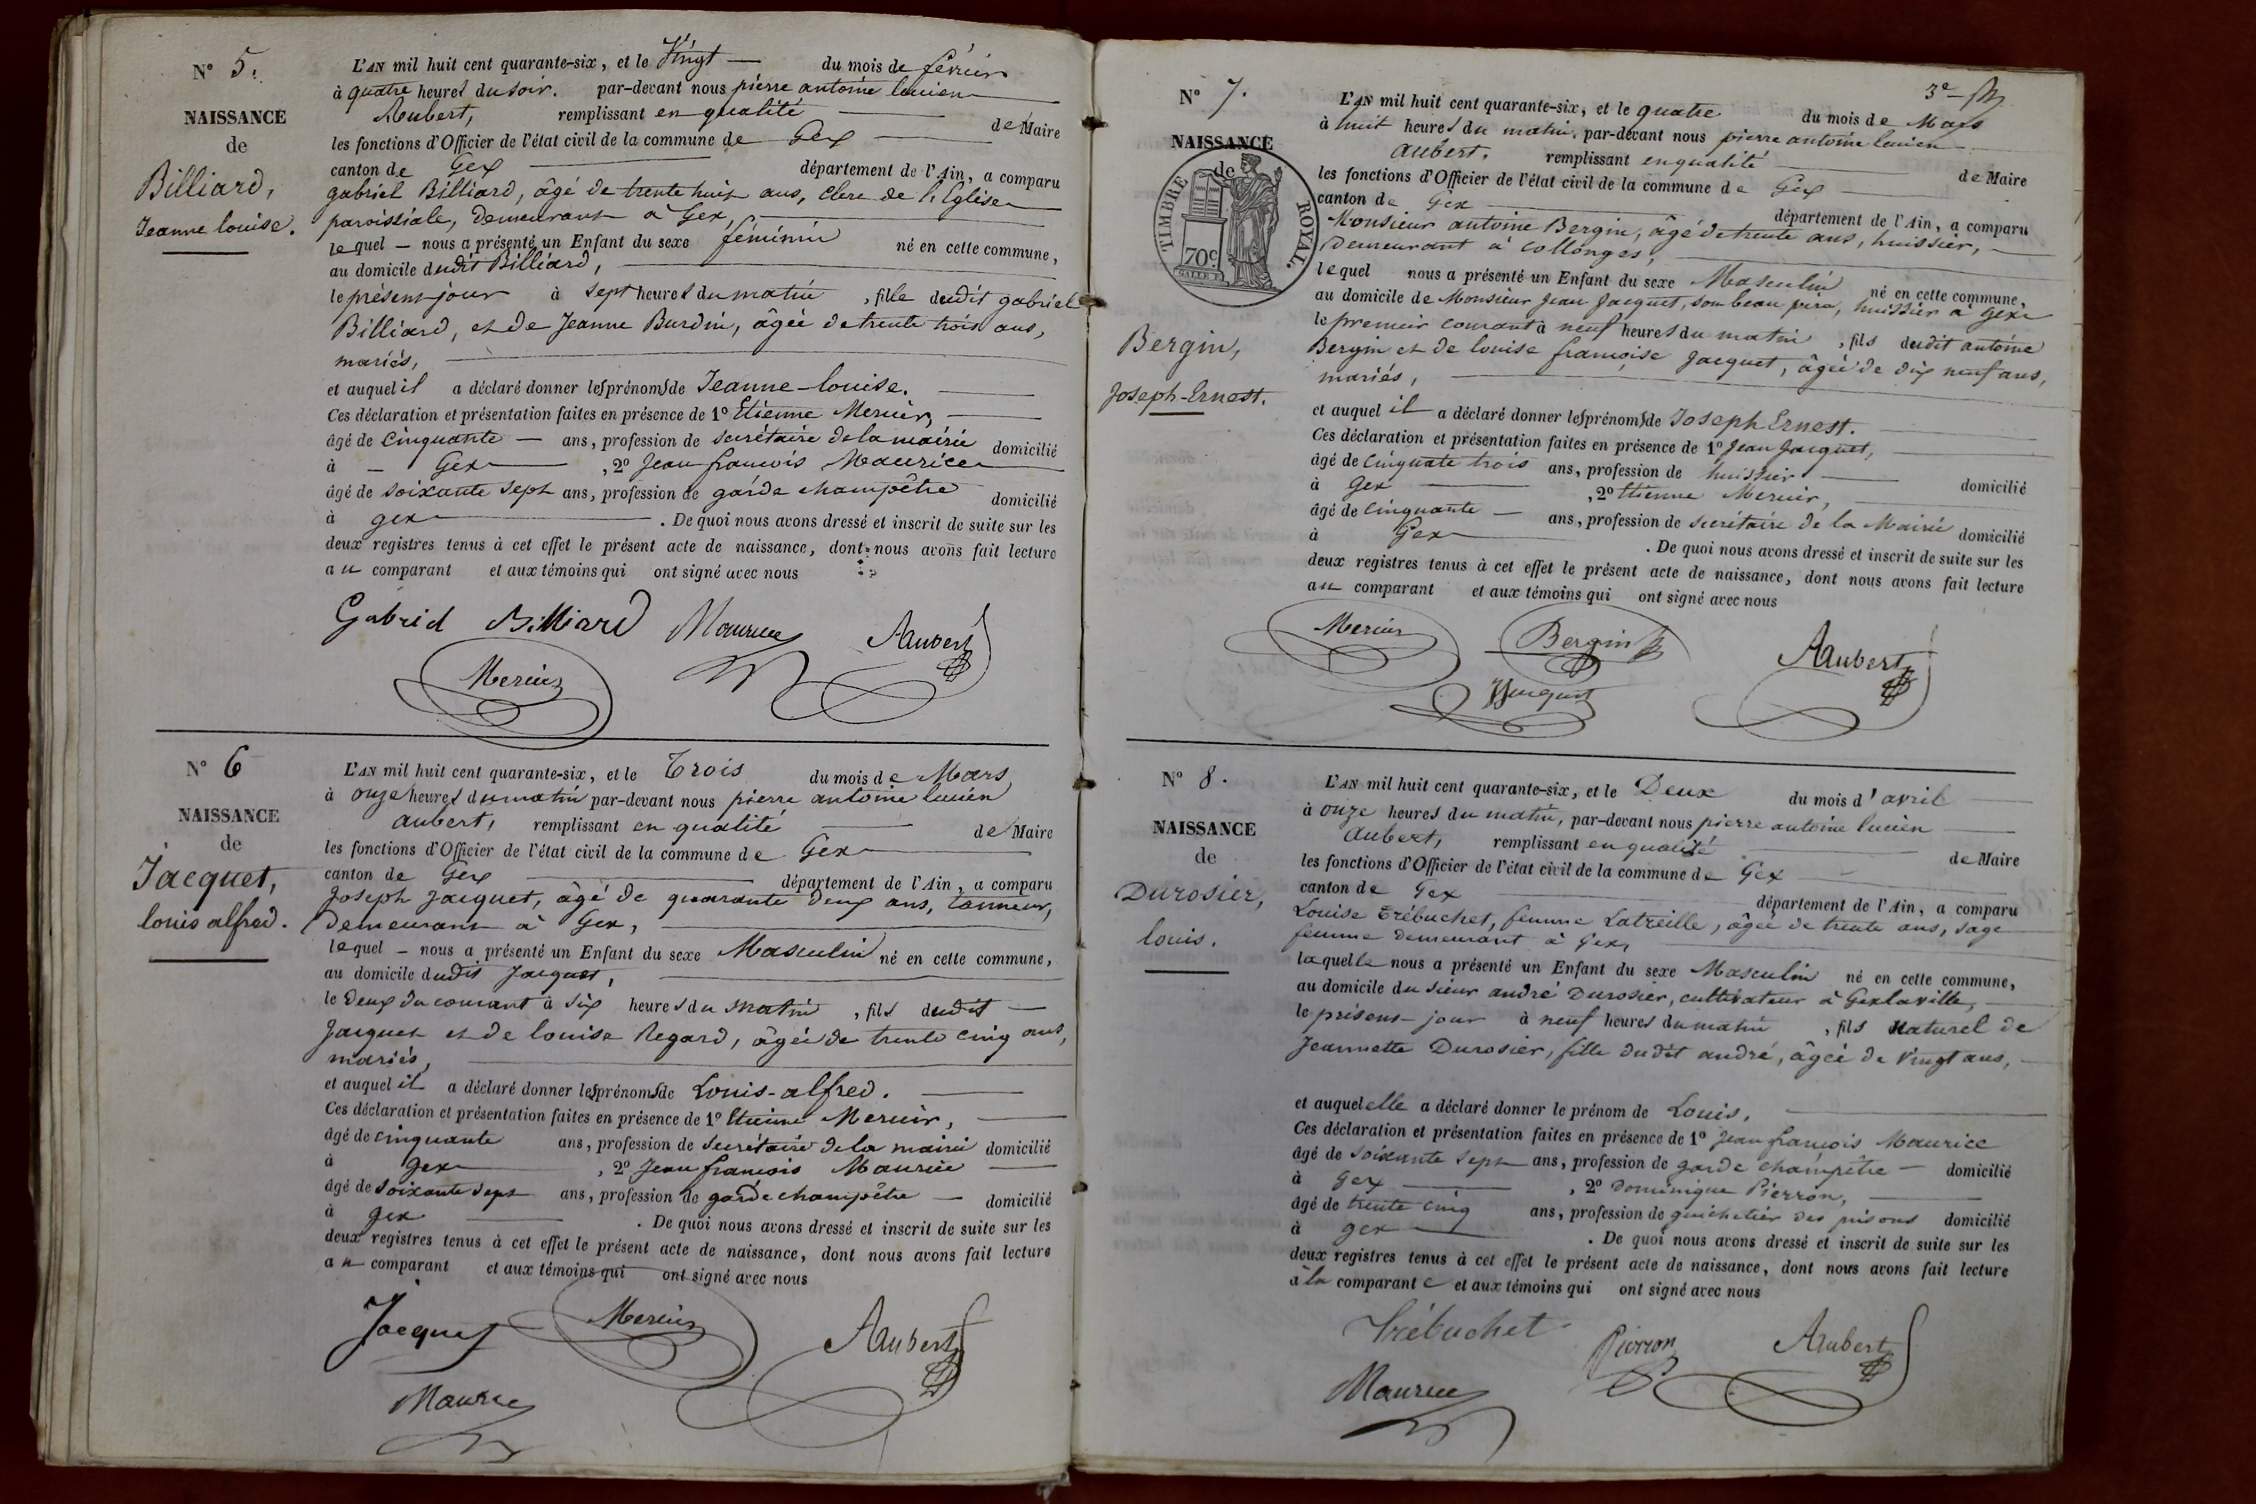 N° 5.
NAISSANCE
de
Billiard,
Jeanne louise.
L'AN mil huit cent quarante-six, et le Vingt du mois de février
à quatre heures du soir. par-devant nous pierre antoine lucien
Aubert, remplissant en qualité de Maire
les fonctions d'Officier de l'état civil de la commune de Gex
canton de Gex département de l'Ain, a comparu
gabriel Billiard, âgé de trente huit ans, clerc de l'Eglise
paroissiale, demeurant à Gex,
lequel – nous a présenté un Enfant du sexe féminin né en cette commune,
au domicile dudit Billiard,
le présent jour à sept heures du matin, fille dudit gabriel
Billiard, et de Jeanne Burdin, âgée de trente trois ans,
mariés,
et auquel il a déclaré donner les prénoms de Jeanne-louise.
Ces déclaration et présentation faites en présence de 1° Etienne Mercier,
âgé de cinquante — ans, profession de secrétaire de la mairie domicilié
à – Gex, 2° Jean françois Maurice
âgé de soixante sept ans, profession de garde champêtre domicilié
à gex. De quoi nous avons dressé et inscrit de suite sur les
deux registres tenus à cet effet le présent acte de naissance, dont nous avons fait lecture
au comparant et aux témoins qui ont signé avec nous
Gabriel Billiard Maurice Aubert
Mercier
N° 6
NAISSANCE
de
Jacquet,
louis alfred.
L'AN mil huit cent quarante-six, et le Trois du mois de Mars
à onze heures du matin par-devant nous pierre antoine lucien
aubert, remplissant en qualité de Maire
les fonctions d'Officier de l'état civil de la commune de Gex
canton de Gex département de l'Ain, a comparu
Joseph Jacquet, âgé de quarante deux ans, tanneur,
demeurant à Gex,
lequel – nous a présenté un Enfant du sexe Masculin né en cette commune,
au domicile dudit Jacquet,
le deux du courant à six heures du matin, fils dudit
Jacquet et de louise Regard, âgée de trente cinq ans,
mariés,
et auquel il a déclaré donner les prénoms de Louis-alfred.
Ces déclaration et présentation faites en présence de 1° Etienne Mercier,
âgé de cinquante ans, profession de secrétaire de la mairie domicilié
à gex, 2° Jean françois Maurice
âgé de soixante sept ans, profession de garde champêtre — domicilié
à gex. De quoi nous avons dressé et inscrit de suite sur les
deux registres tenus à cet effet le présent acte de naissance, dont nous avons fait lecture
au comparant et aux témoins qui ont signé avec nous
Jacquet Mercier Aubert
Maurice
3e
N° 7.
NAISSANCE
de
TIMBRE ROYAL.
70c
Bergin,
Joseph-Ernest.
L'AN mil huit cent quarante-six, et le quatre du mois de Mars
à huit heures du matin. par-devant nous pierre antoine lucien
aubert. remplissant en qualité de Maire
les fonctions d'Officier de l'état civil de la commune de Gex
canton de Gex département de l'Ain, a comparu
Monsieur antoine Bergin, âgé de trente ans, huissier,
demeurant à collonges,
lequel nous a présenté un Enfant du sexe Masculin né en cette commune,
au domicile de Monsieur Jean Jacquet, son beau père, huissier à Gex
le premier courant à neuf heures du matin, fils dudit antoine
Bergin et de louise françoise Jacquet, âgée de dix neuf ans,
mariés,
et auquel il a déclaré donner les prénoms de Joseph Ernest.
Ces déclaration et présentation faites en présence de 1° Jean Jacquet,
âgé de cinquate trois ans, profession de huissier domicilié
à Gex, 2° Etienne Mercier,
âgé de cinquante — ans, profession de secrétaire de la Mairie domicilié
à Gex. De quoi nous avons dressé et inscrit de suite sur les
deux registres tenus à cet effet le présent acte de naissance, dont nous avons fait lecture
au comparant et aux témoins qui ont signé avec nous
Mercier Bergin Aubert
Jacquet
N° 8.
NAISSANCE
de
Durosier,
louis.
L'AN mil huit cent quarante-six, et le Deux du mois d'avril
à onze heures du matin, par-devant nous pierre antoine lucien
Aubert, remplissant en qualité de Maire
les fonctions d'Officier de l'état civil de la commune de Gex
canton de Gex département de l'Ain, a comparu
Louise Trébuchet, femme Latreille, âgée de trente ans, sage
femme demeurant à Gex,
laquelle nous a présenté un Enfant du sexe Masculin né en cette commune,
au domicile du sieur andré Durosier, cultivateur à Gexlaville,
le présent jour à neuf heures du matin, fils naturel de
Jeannette Durosier, fille dudit andré, âgée de vingt ans,
et auquel elle a déclaré donner le prénom de Louis,
Ces déclaration et présentation faites en présence de 1° Jean françois Maurice
âgé de soixante sept ans, profession de garde champêtre — domicilié
à gex, 2° Dominique Pierron,
âgé de trente cinq ans, profession de guichetier des prisons domicilié
à gex. De quoi nous avons dressé et inscrit de suite sur les
deux registres tenus à cet effet le présent acte de naissance, dont nous avons fait lecture
à la comparante et aux témoins qui ont signé avec nous
Trébuchet Pierron Aubert
Maurice